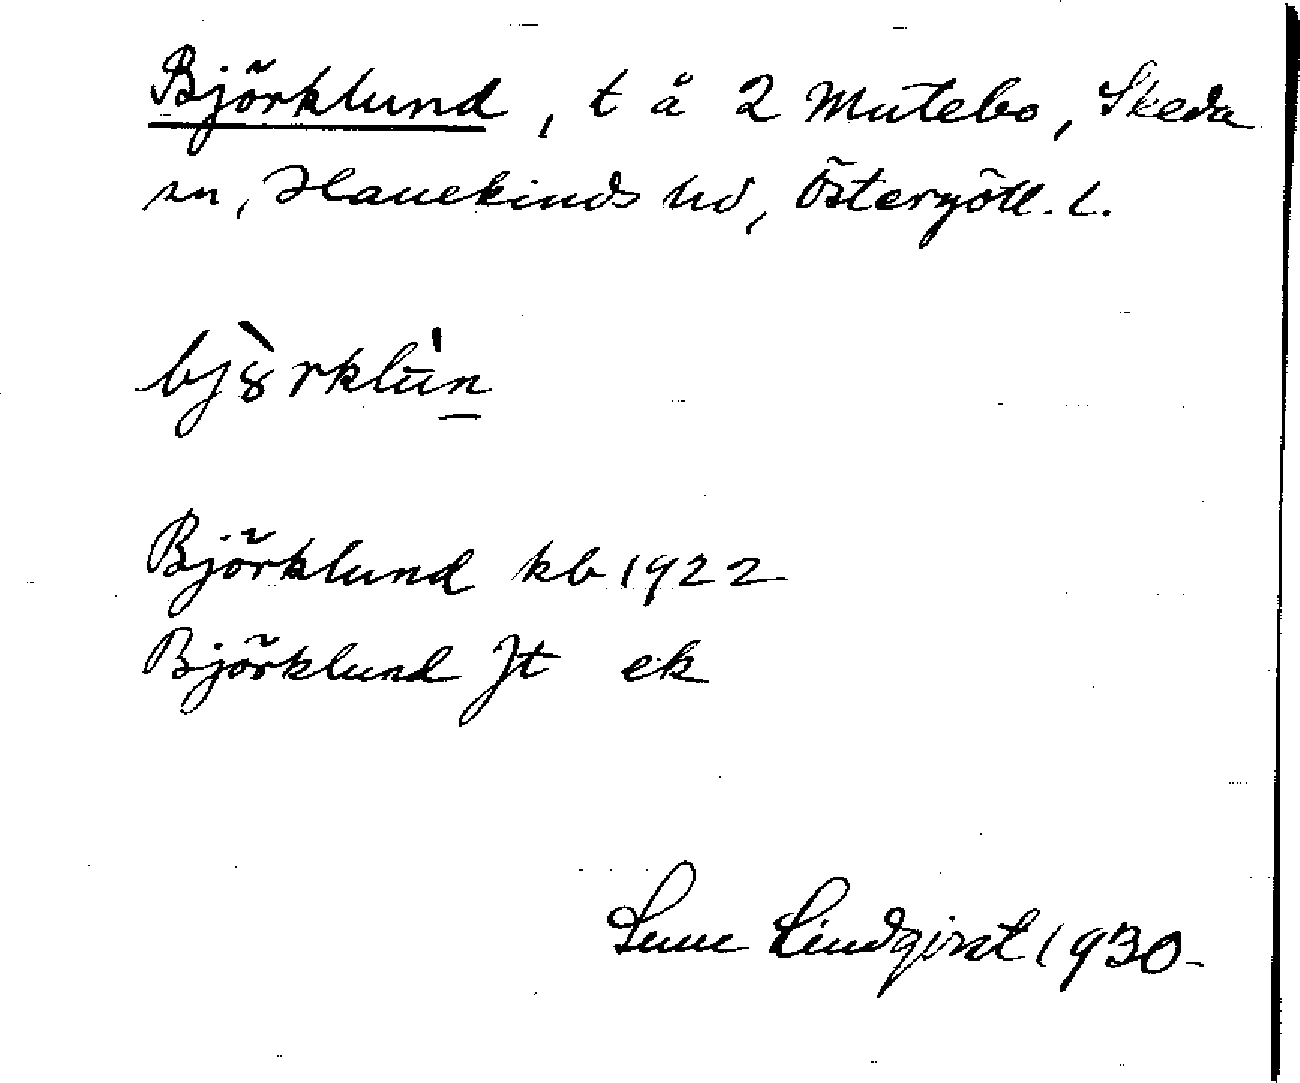 Björklund, t å 2 Mutebo, Skeda
sn, Hanekinds hd, Östergötl. l.
bjòrklún
Björklund kb 1922
Björklund Jt ek
Sune Lindqvist 1930